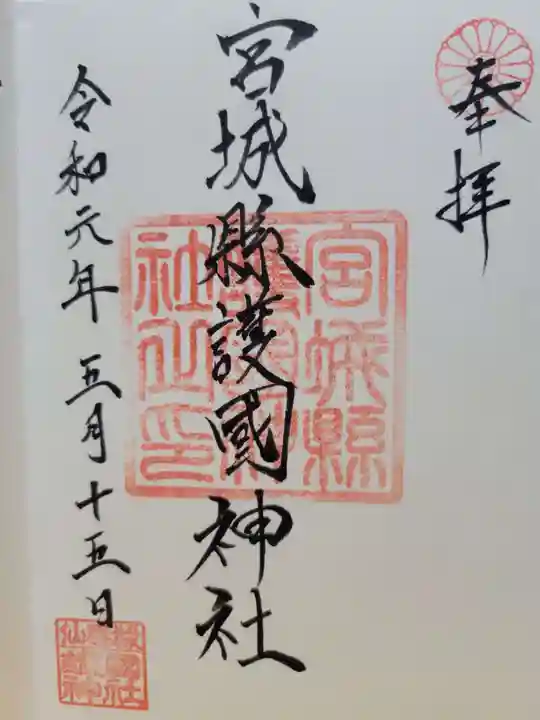 奉拝
宮城縣護國神社
宮城縣
護國神
社之印
令和元年五月十五日